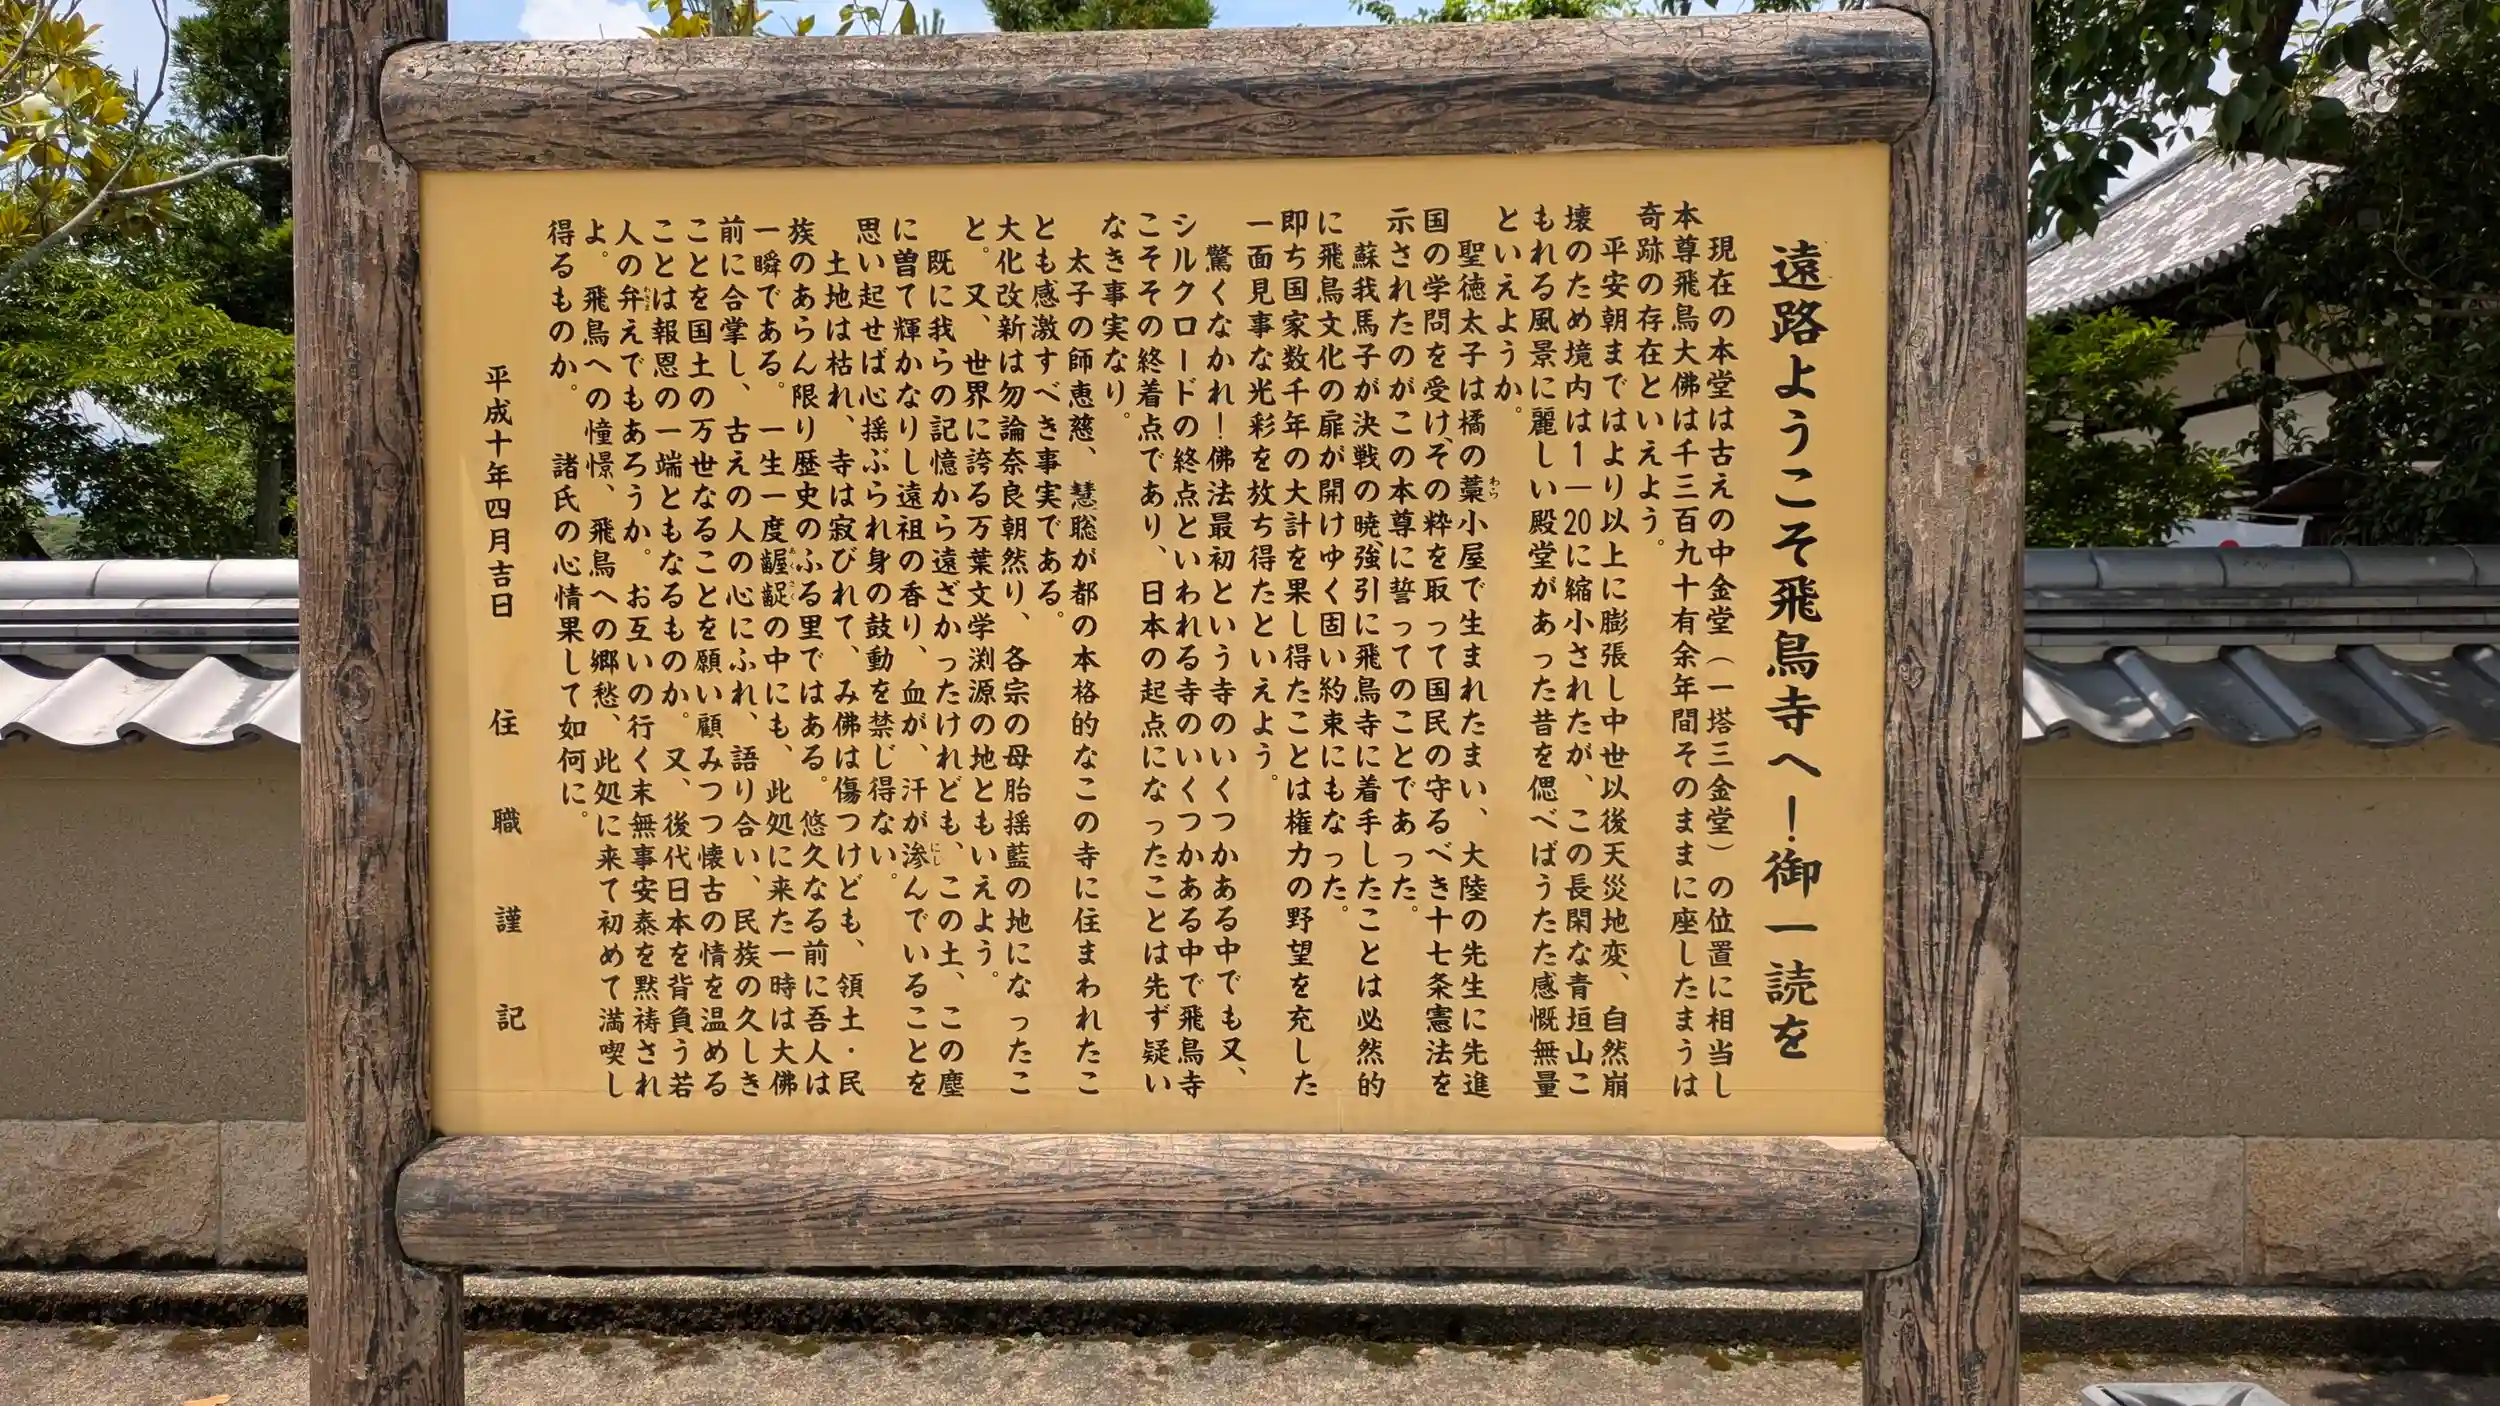 遠路ようこそ飛鳥寺へ！御一読を
現在の本堂は古えの中金堂（一塔三金堂）の位置に相当し
本尊飛鳥大佛は千三百九十有余年間そのままに座したまうは
奇跡の存在といえよう。
平安朝まではより以上に膨張し中世以後天災地変、自然崩
壊のため境内は1―20に縮小されたが、この長閑な青垣山こ
もれる風景に麗しい殿堂があった昔を偲べばうたた感慨無量
といえようか。
聖徳太子は橘の藁小屋で生まれたまい、大陸の先生に先進
わら
国の学問を受け、その粋を取って国民の守るべき十七条憲法を
示されたのがこの本尊に誓ってのことであった。
蘇我馬子が決戦の暁、強引に飛鳥寺に着手したことは必然的
に飛鳥文化の扉が開けゆく固い約束にもなった。
即ち国家数千年の大計を果し得たことは権力の野望を充した
一面見事な光彩を放ち得たといえよう。
驚くなかれ！佛法最初という寺のいくつかある中でも又、
シルクロードの終点といわれる寺のいくつかある中で飛鳥寺
こそその終着点であり、日本の起点になったことは先ず疑い
なき事実なり。
太子の師恵慈、慧聡が都の本格的なこの寺に住まわれたこ
とも感激すべき事実である。
大化改新は勿論奈良朝然り、各宗の母胎揺藍の地になったこ
と。又、世界に誇る万葉文学渕源の地ともいえよう。
既に我らの記憶から遠ざかったけれども、この土、この塵
に曽て輝かなりし遠祖の香り、血が、汗が滲んでいることを
にじ
思い起せば心揺ぶられ身の鼓動を禁じ得ない。
土地は枯れ、寺は寂びれて、み佛は傷つけども、領土・民
族のあらん限り歴史のふる里ではある。悠久なる前に吾人は
一瞬である。一生一度齷齪の中にも、此処に来た一時は大佛
あくさく
前に合掌し、古えの人の心にふれ、語り合い、民族の久しき
ことを国土の万世なることを願い顧みつつ懐古の情を温める
ことは報恩の一端ともなるものか。又、後代日本を背負う若
人の弁えでもあろうか。お互いの行く末無事安泰を黙祷され
わきま
よ。飛鳥への憧憬、飛鳥への郷愁、此処に来て初めて満喫し
得るものか。諸氏の心情果して如何に。
平成十年四月吉日　住職謹記